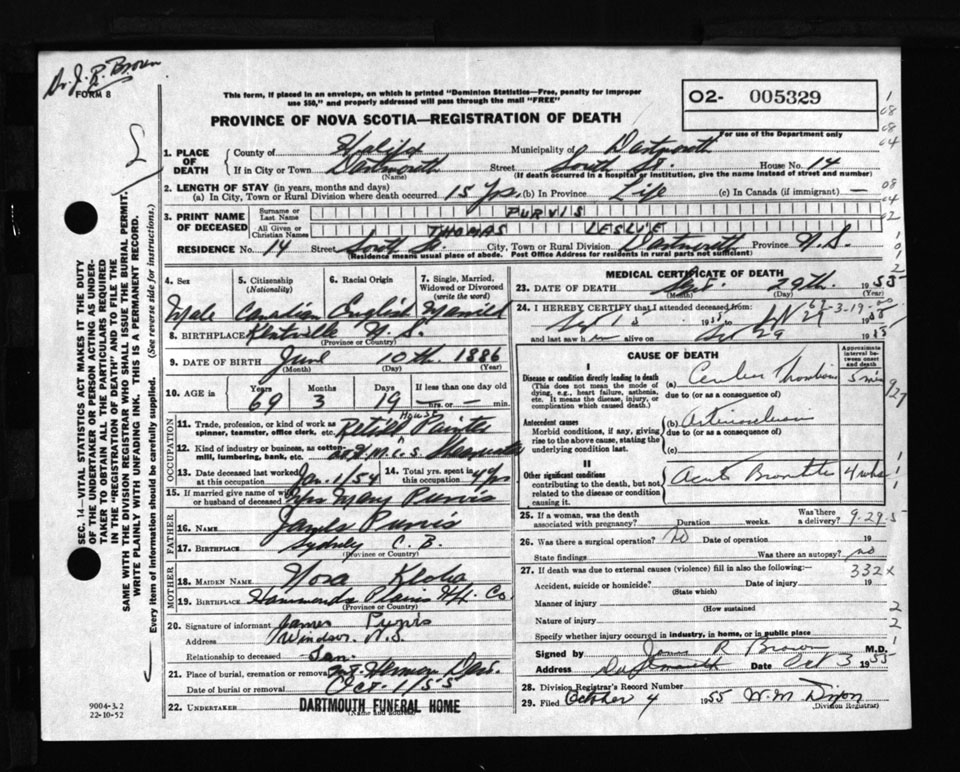 Dr. J. R. Brown
FORM 8
This form, if placed in an envelope, on which is printed "Dominion Statistics—Free, penalty for improper
use $50," and properly addressed will pass through the mail "FREE"
O2- 005329
For use of the Department only
PROVINCE OF NOVA SCOTIA—REGISTRATION OF DEATH
1. PLACE OF DEATH
County of Halifax Municipality of Dartmouth
If in City or Town Dartmouth Street South St. House No. 14
(Name) (If death occurred in a hospital or institution, give the name instead of street and number)
2. LENGTH OF STAY (in years, months and days)
(a) In City, Town or Rural Division where death occurred 15 Yrs (b) In Province Life (c) In Canada (if immigrant) —
3. PRINT NAME OF DECEASED
Surname or Last Name PURVIS
All Given or Christian Names THOMAS LESLIE
RESIDENCE No. 14 Street South St. City, Town or Rural Division Dartmouth Province N.S.
(Residence means usual place of abode. Post Office Address for residents in rural parts not sufficient)
4. Sex 5. Citizenship (Nationality) 6. Racial Origin 7. Single, Married, Widowed or Divorced (write the word)
Male Canadian English Married
8. BIRTHPLACE Kentville N.S.
(Province or Country)
9. DATE OF BIRTH June 10th. 1886
(Month) (Day) (Year)
10. AGE in Years Months Days If less than one day old
69 3 19 — hrs. or — min.
OCCUPATION
11. Trade, profession, or kind of work as spinner, teamster, office clerk, etc. Retired House Painter
12. Kind of industry or business, as cotton mill, lumbering, bank, etc. H.M.C.S. Shearwater
13. Date deceased last worked at this occupation Jan. 1/54 14. Total yrs. spent in this occupation 4 yrs
15. If married give name of wife or husband of deceased Mrs Mary Purvis
FATHER
16. NAME James Purvis
17. BIRTHPLACE Sydney C.B.
(Province or Country)
MOTHER
18. MAIDEN NAME Nora
19. BIRTHPLACE Hammonds Plains Hfx. Co.
(Province or Country)
20. Signature of informant James Purvis
Address Windsor N.S.
Relationship to deceased Son
21. Place of burial, cremation or removal Mt. Hermon Dart.
Date of burial or removal Oct. 1/55
22. UNDERTAKER DARTMOUTH FUNERAL HOME
(Name and Address)
9004-3.2
22-10-52
MEDICAL CERTIFICATE OF DEATH
23. DATE OF DEATH Sept. 29th. 1955
(Month) (Day) (Year)
24. I HEREBY CERTIFY that I attended deceased from:
and last saw h alive on
CAUSE OF DEATH
Approximate interval between onset and death
I
Disease or condition directly leading to death
(This does not mean the mode of dying, e.g., heart failure, asthenia, etc. It means the disease, injury, or complication which caused death.)
(a)
due to (or as a consequence of)
Antecedent causes
Morbid conditions, if any, giving rise to the above cause, stating the underlying condition last.
(b)
due to (or as a consequence of)
(c)
II
Other significant conditions
contributing to the death, but not related to the disease or condition causing it.
Acute
25. If a woman, was the death associated with pregnancy? Duration weeks. Was there a delivery?
9-29-5
26. Was there a surgical operation? No Date of operation 19
State findings Was there an autopsy? no
27. If death was due to external causes (violence) fill in also the following:
332X
Accident, suicide or homicide? Date of injury 19
(State which)
Manner of injury
(How sustained
Nature of injury
Specify whether injury occurred in industry, in home, or in public place
Signed by James R Brown M.D.
Address Dartmouth Date Oct 3 1955
28. Division Registrar's Record Number
29. Filed October 4 1955 W. M. Dixon
(Division Registrar)
SEC. 14—VITAL STATISTICS ACT MAKES IT THE DUTY
OF THE UNDERTAKER OR PERSON ACTING AS UNDERTAKER
TO OBTAIN ALL THE PARTICULARS REQUIRED
IN THE "REGISTRATION OF DEATH" AND TO FILE THE
SAME WITH THE DIVISION REGISTRAR WHO SHALL ISSUE THE BURIAL PERMIT.
WRITE PLAINLY WITH UNFADING INK. THIS IS A PERMANENT RECORD.
Every item of information should be carefully supplied. (See reverse side for instructions.)